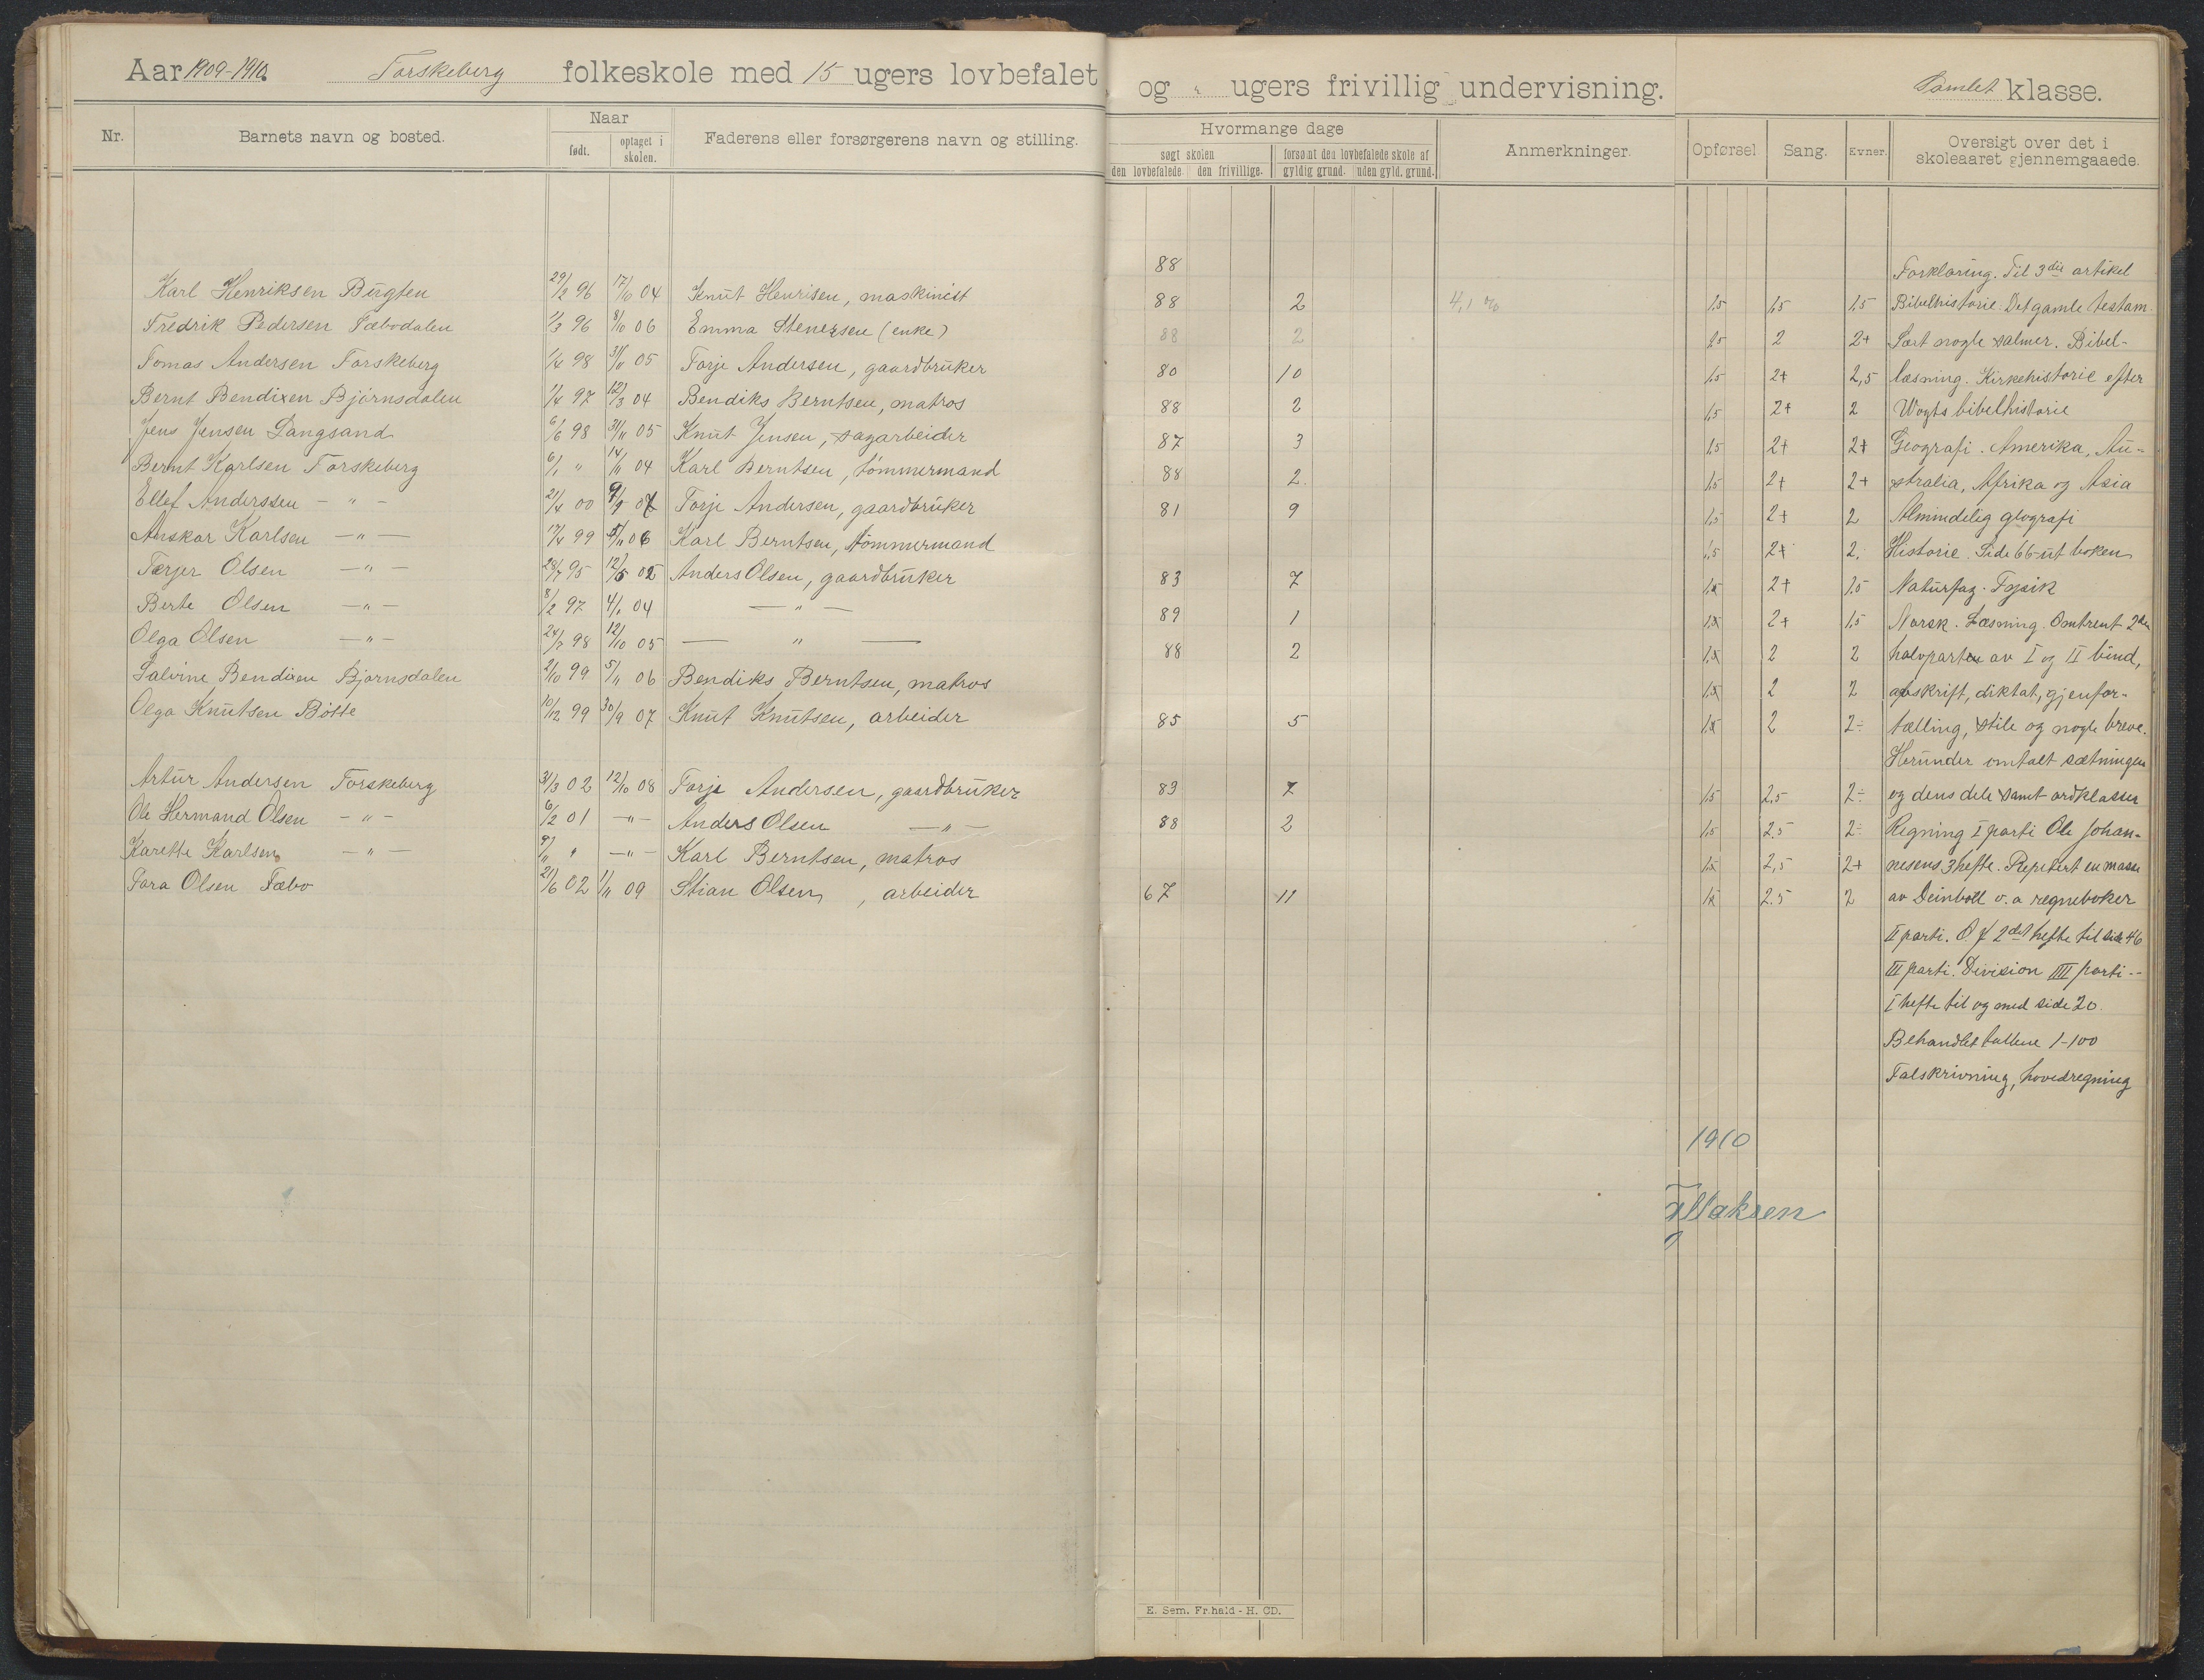 Aar 1909-1910. Torskeberg folkeskole med 15 ugers lovbefalet og " ugers frivillig undervisning. Samlet klasse.
Nr. Barnets navn og bosted. Naar født. optaget i skolen. Faderens eller forsørgerens navn og stilling.
Hvormange dage
søgt skolen forsømt den lovbefalede skole af
den lovbefalede. den frivillige. gyldig grund. uden gyld. grund.
Anmerkninger. Opførsel. Sang. Evner.
Oversigt over det i
skoleaaret gjennemgaaede.
Karl Henriksen Bugten 29/2 96 17/10 04 Knut Henrisen, maskinist
Fredrik Pedersen Fæbodalen 1/3 96 8/10 06 Emma Stenersen (enke)
Tomas Andersen Torskeberg 1/4 98 31/11 05 Torje Andersen, gaardbruker
Bernt Bendixen Bjørnsdalen 1/4 97 12/3 04 Bendiks Berntsen, matros
Jens Jensen Langsand 6/6 98 31/11 05 Knut Jensen, sagarbeider
Bernt Karlsen Torskeberg 6/1 " 14/11 04 Karl Berntsen, tömmermand
Ellef Anderssen - " - 21/4 00 9/9 07 Torje Andersen, gaardbruker
Anskar Karlsen - " - 17/4 99 5/11 06 Karl Berntsen, tömmermand
Terjer Olsen - " - 28/7 95 12/5 02 Anders Olsen, gaardbruker
Berte Olsen - " - 8/2 97 4/1 04 - " -
Olga Olsen - " - 24/7 98 12/10 05 - " -
Salvine Bendixen Bjørnsdalen 2/10 99 5/11 06 Bendiks Berntsen, matros
Olga Knutsen Bøtte 10/12 99 30/9 07 Knut Knutsen, arbeider
Artur Andersen Torskeberg 31/3 02 12/10 08 Torje Andersen, gaardbruker
Ole Hermand Olsen - " - 6/2 01 - " - Anders Olsen - " -
Karette Karlsen - " - 9/11 " - " - Karl Berntsen, matros
Tara Olsen Fæbo 21/6 02 1/11 09 Stian Olsen, arbeider
88
88 2 4,1 %
88 2
80 10
88 2
87 3
88 2
81 9
83 7
89 1
88 2
85 5
83 7
88 2
67 11
1,5 1,5 1,5
1,5 2 2+
1,5 2+ 2,5
1,5 2+ 2
1,5 2+ 2+
1,5 2+ 2+
1,5 2+ 2
1,5 2+ 2.
1,5 2+ 1,5
1,5 2+ 1,5
1,5 2 2
1,5 2 2
1,5 2 2÷
1,5 2,5 2÷
1,5 2,5 2÷
1,5 2,5 2+
1,5 2.5 2
Forklaring. Til 3die artikel
Bibelhistorie. Det gamle testam.
Lært nogle salmer. Bibel-
læsning. Kirkehistorie efter
Wogts bibelhistorie
Geografi. Amerika, Au-
stralia, Afrika og Asia
Almindelig geografi
Historie. Side 66-ut boken
Naturfag. Fysik
Norsk. Læsning. Omtrent 2den
halvparten av I og II bind,
avskrift, diktat, gjenfor-
tælling, stile og nogle breve.
Herunder omtalt sætningen
og dens dele samt ordklasser
Regning I parti Ole Johan-
nesens 3 hefte. Repetert en masse
av Deinboll o. a regneboker
II parti. O J 2det hefte til side 46
III parti. Division IIII parti -
I hefte til og med side 20.
Behandlet tallene 1-100
Talskrivning, hovedregning
1910
E. Sem, Fr.hald - H. CD.